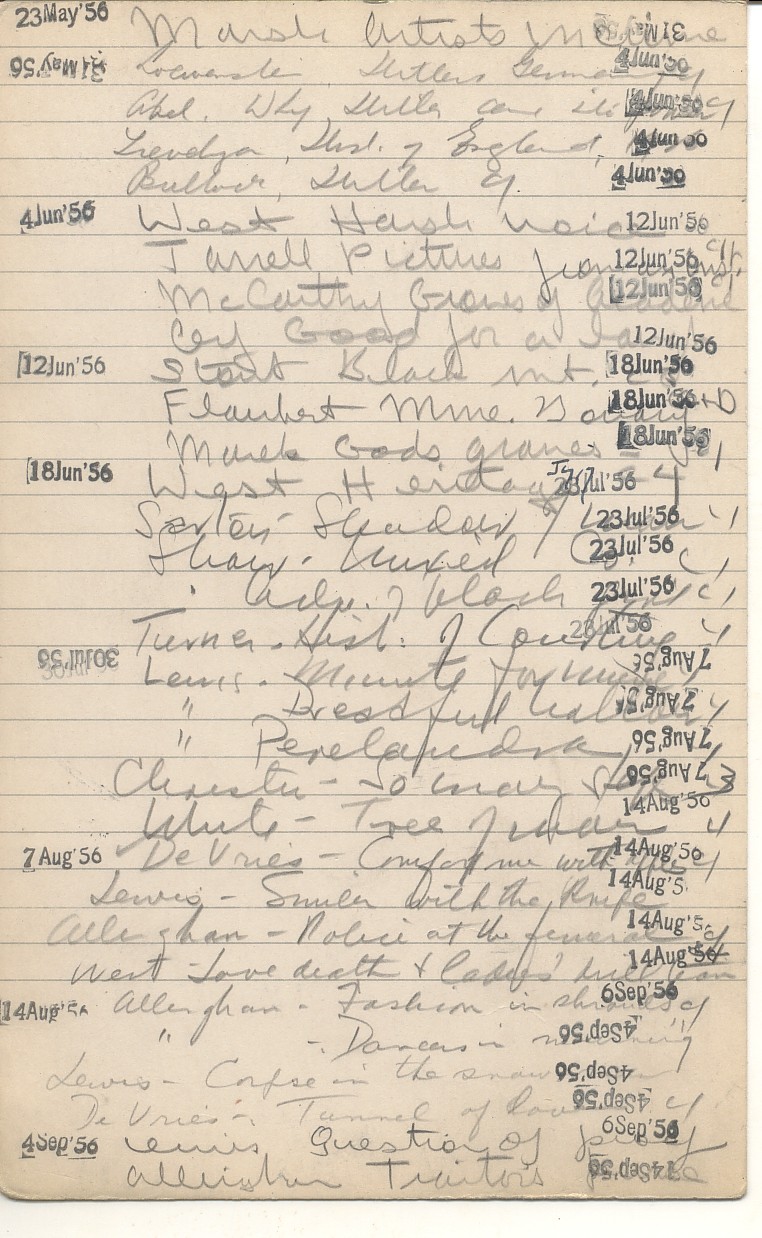 23May'56 Marsh Artists in Crime 31May'56
31May'56 Loewenstein, Hitlers Germany 4Jun'56
Abel. Why Hitler came into power 4Jun'56
Trevelyan, Hist. of England, 4Jun'56
Bullock, Hitler 4Jun'56
4Jun'56 West Harsh voice 12Jun'56
Jarrell Pictures from an Inst. 12Jun'56
McCarthy Groves of Academe 12Jun'56
Good for a 12Jun'56
12Jun'56 Stout Black mt. 18Jun'56
Flaubert Mme. Bovary 18Jun'56
Marek Gods graves 18Jun'56
18Jun'56 West Heritage 23Jul'56
Shadow 23Jul'56
Shaw - Unsocial 23Jul'56
Adv. of black 23Jul'56
Turner - Hist. of Courting 23Jul'56
30Jul'56 Lewis - Minute for murder 7Aug'56
" Dreadful hollow 7Aug'56
" Perelandra 7Aug'56
Christie - So many 7Aug'56
White - Tree of man 14Aug'56
7Aug'56 De Vries - Comfort me with apples 14Aug'56
Lewis - Smiler with the Knife 14Aug'5
Allingham - Police at the funeral 14Aug'56
West - Love death & ladies' drill team 14Aug'56
14Aug'56 Allingham - Fashion in shrouds 6Sep'56
" - Dancers in mourning 4Sep'56
Lewis - Corpse in the snowman 4Sep'56
De Vries - Tunnel of love 4Sep'56
4Sep'56 Lewis Question of proof 6Sep'56
Allingham Traitor's purse 14Sep'56